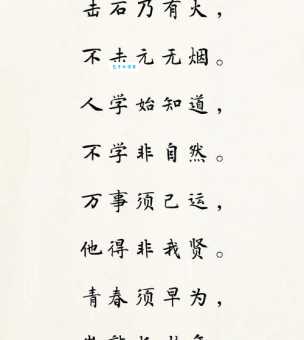 击石乃有火，
不击元无烟。
人学始知道，
不学非自然。
万事须己运，
他得非我贤。
青春须早为，